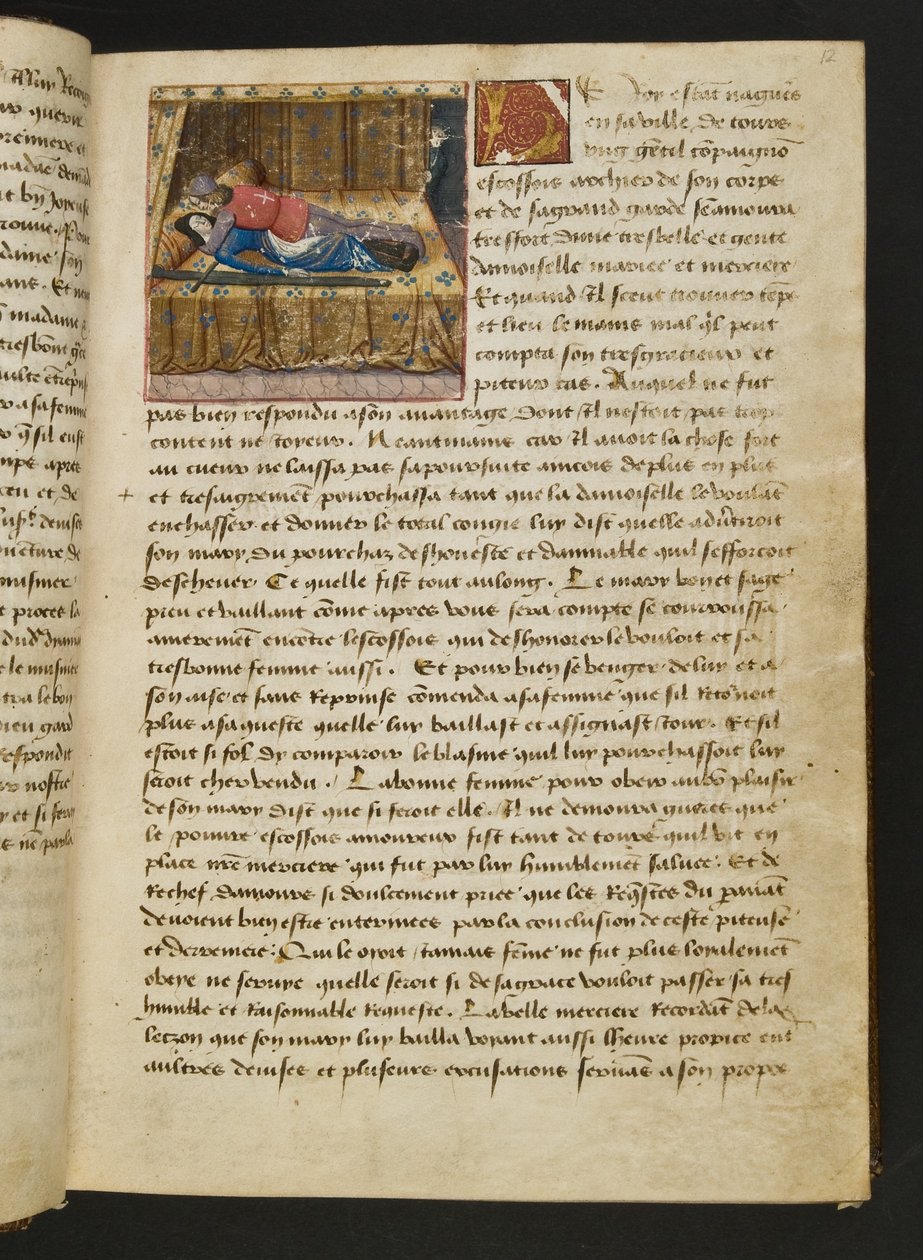 12
Le Roy estãt nagueres
en sa ville de tours
vng gẽtil cõpaignõ
escossois archier de son corps
et de sa grand garde sẽamoura
tresfort dune tresbelle et gente
damoiselle mariee et merciere
Et quand Il sceut trouuer tẽps
et lieu le moins mal q̃l peut
compta son tresgracieux et
piteux cas. Auquel ne fut
pas bien respondu a son auantage dont Il nestoit pas trop
content ne Joyeux. Neantmains car Il auoit la chose fort
au cueur ne laissa pas sa poursuite aincois de plus en plus
et tresaigremẽt pourchassa tant que la damoiselle le voulãt
enchasser et donner le total congie luy dist quelle aduẽtiroit
son mary du pourchaz deshoneste et damnable quil sefforcoit
descheuer. Ce quelle fist tout au long. Le mary bon et sage
preu et vaillant cõme apres vous sera compte se courroussa
amerement encõtre lescossois qui deshonorer le vouloit et sa
tresbonne femme aussi. Et pour bien se venger de luy et a
son aise et sans reprinse cõmenda a sa femme que sil retõnoit
plus a sa queste quelle luy baillast et assignast Jour. Et sil
estoit si fol dy comparoir le blasme quil luy pourchassoit luy
seroit cher vendu. La bonne femme pour obeir au bõ plaisir
de son mary dist que si feroit elle. Il ne demoura gueres que
le pouure escossois amoureux fist tant de tours quil vit en
place nr̃e merciere qui fut par luy humblemẽt saluee. Et de
rechef damours si doulcement priee que les req̃stes du parauãt
deuoient bien estre enterinees par la conclusion de ceste piteuse
et derreniere. Qui le oyoit Jamais fẽme ne fut plus loyalemẽt
obeye ne seruye quelle seroit si de sa grace vouloit passer sa tres
humble et raisonnable requeste. La belle merciere recordãt de la
leczon que son mary luy bailla voyant aussi lheure propice ent
aultres deuises et pluseurs excusations seruãs a son propos